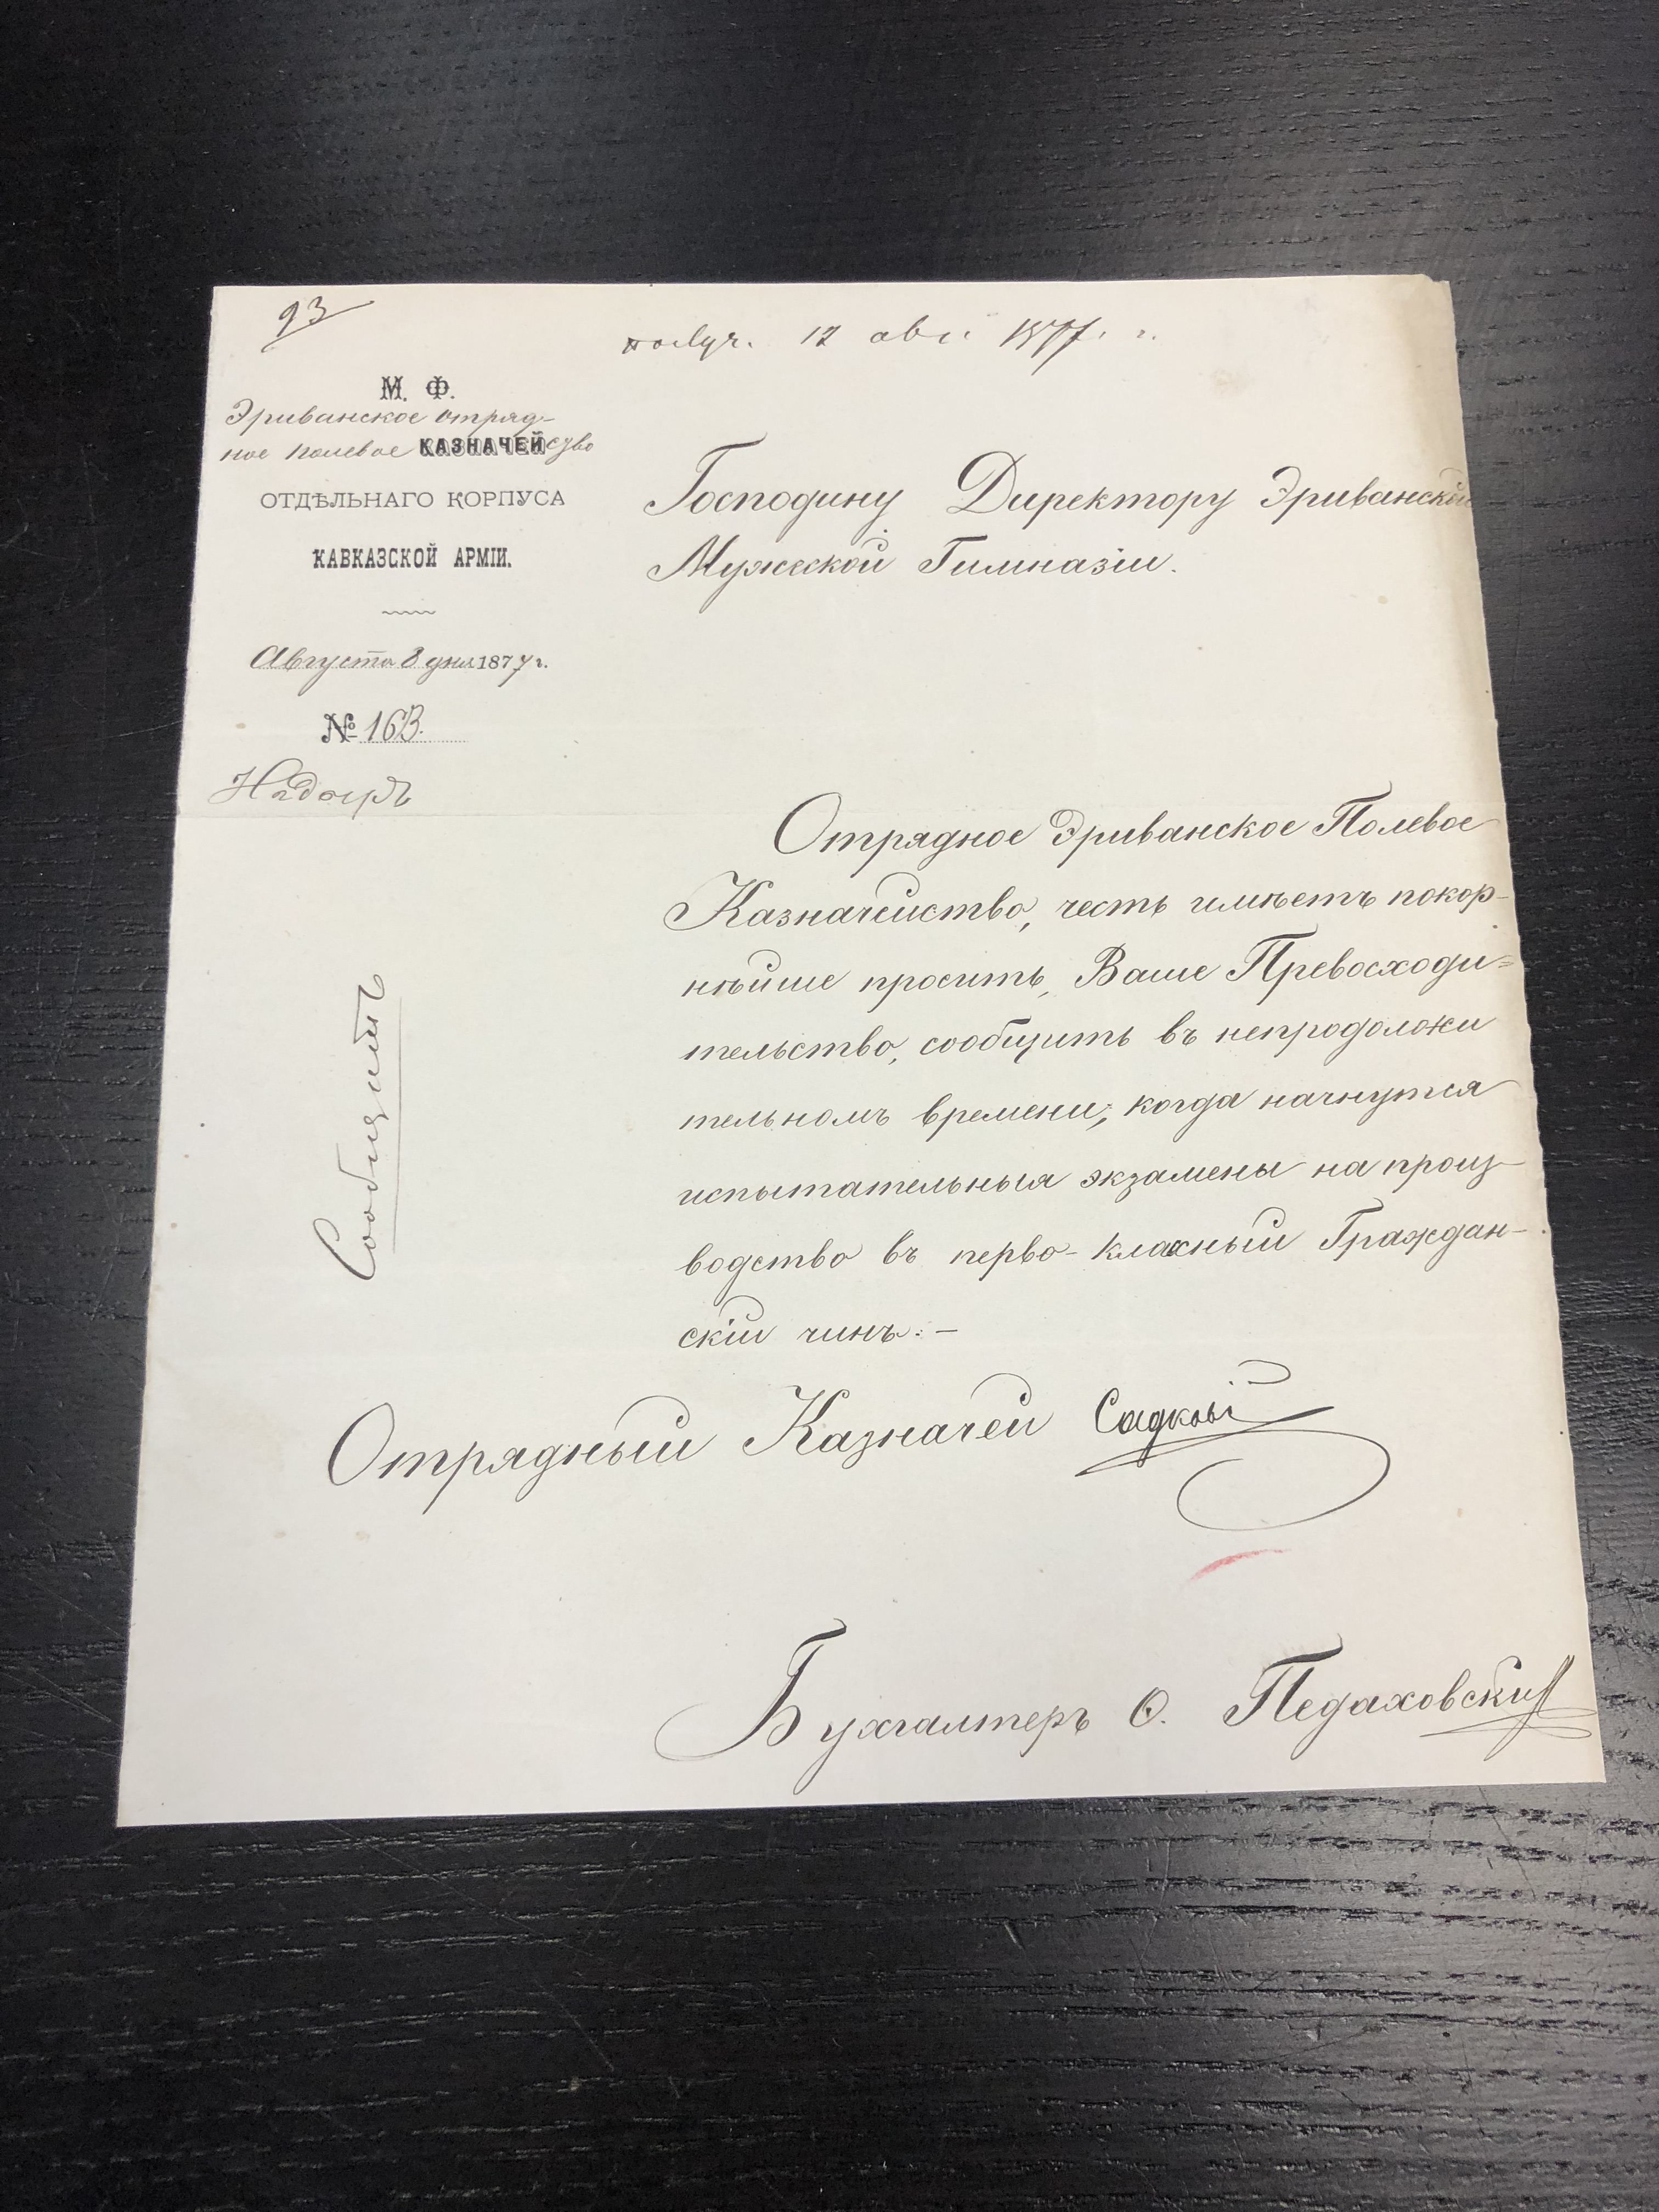 93
получ. 12 авг 1877. г.
М. Ф.
Эриванское отряд-
ное полевое КАЗНАЧЕЙство
ОТДѢЛЬНАГО КОРПУСА
КАВКАЗСКОЙ АРМІИ.
Августа 8 дня 1877 г.
№ 163.
Господину Директору Эриванской
Мужской Гимназіи.
Отрядное Эриванское Полевое
Казначейство, честь имѣетъ покор-
нѣйше просить, Ваше Превосходи-
тельство, сообщить въ непродолжи
тельномъ времени, когда начнутся
испытательныя экзамены на произ-
водство въ перво-класный Граждан-
скій чинъ.-
Сообщить
Отрядный Казначей
Бухгалтеръ О. Педаховскій